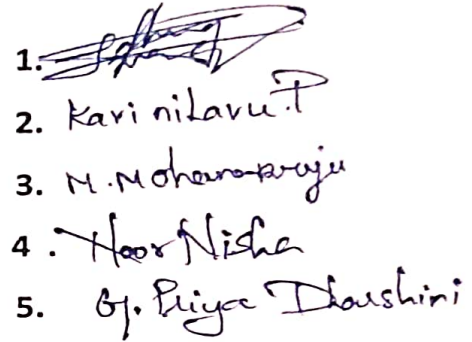 1.
2. Kavi nilavu.P
3. M. Mohanapriya
4. Noor Nisha
5. G. Priya Dharshini